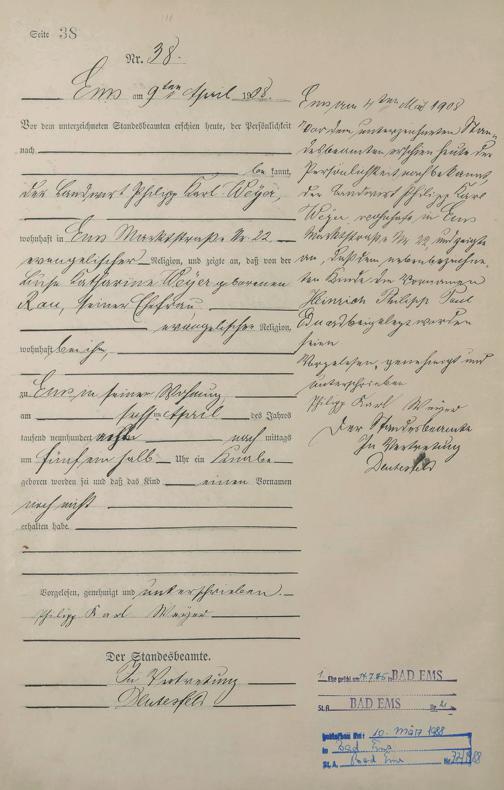 Seite 38
Nr. 38.
Ems am 9ten April 1908.
Vor dem unterzeichneten Standesbeamten erschien heute, der Persönlichkeit
nach
bekannt,
der Landwirt Philipp Karl Weyer,
wohnhaft in Ems Marktstraße Nr. 22
evangelischer Religion, und zeigte an, daß von der
Katharine Weyer geborenen
Rau, seiner Ehefrau
evangelischer Religion,
wohnhaft bei ihm,
zu Ems in seiner Wohnung
am sechsten April des Jahres
tausend neunhundert acht nach mittags
um fünf ein halb Uhr ein Knabe
geboren worden sei und daß das Kind einen Vornamen
noch nicht
erhalten habe.
Vorgelesen, genehmigt und unterschrieben.
Philipp Karl Weyer
Der Standesbeamte.
In Vertretung
Ems, am 4ten Mai 1908
Vor dem unterzeichneten Stan-
desbeamten erschien heute der
Persönlichkeit nach bekannt,
der Landwirt Philipp Karl
Weyer wohnhaft in Ems
Marktstraße Nr 22, und zeigte
an, daß dem nebenbezeichne-
ten Kinde die Vornamen
Heinrich Philipp Paul
beigelegt worden
seien
Vorgelesen, genehmigt und
unterschrieben
Philipp Karl Weyer
Der Standesbeamte
In Vertretung
1. Ehe geschl. am in BAD EMS
St. A. BAD EMS Nr.
gestorben am: 10. März 1988
in Bad Ems
St. A. Bad Ems Nr.